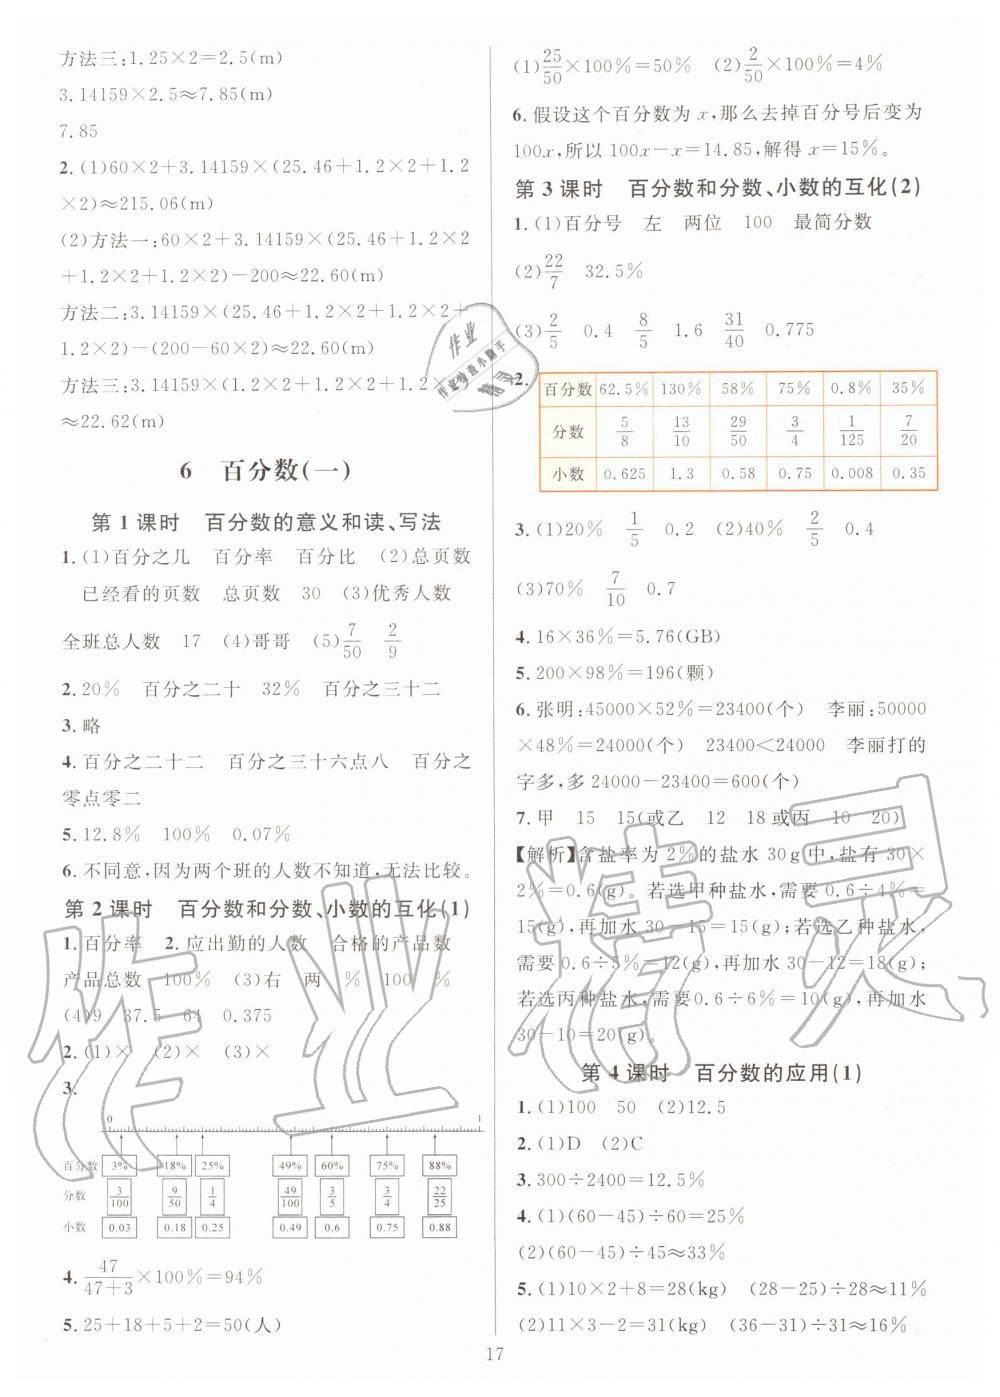 方法三:1.25×2=2.5(m)
3.14159×2.5≈7.85(m)
7.85
2.(1)60×2+3.14159×(25.46+1.2×2+1.2
×2)≈215.06(m)
(2)方法一:60×2+3.14159×(25.46+1.2×2
+1.2×2+1.2×2)-200≈22.60(m)
方法二:3.14159×(25.46+1.2×2+1.2×2+
1.2×2)-(200-60×2)≈22.60(m)
方法三:3.14159×(1.2×2+1.2×2+1.2×
≈22.62(m)
6 百分数(一)
第1课时 百分数的意义和读、写法
1.(1)百分之几 百分率 百分比 (2)总页数
已经看的页数 总页数 30 (3)优秀人数
全班总人数 17 (4)哥哥 (5)7/50 2/9
2.20% 百分之二十 32% 百分之三十二
3.略
4.百分之二十二 百分之三十六点八 百分之
零点零二
5.12.8% 100% 0.07%
6.不同意,因为两个班的人数不知道,无法比较。
第2课时 百分数和分数、小数的互化(1)
1.百分率 2.应出勤的人数 合格的产品数
产品总数 100% (3)右 两 % 100 %
(4)9 37.5 64 0.375
2.(1)× (2)× (3)×
3.
0 1
百分数 3% 18% 25% 49% 60% 75% 88%
分数 3/100 9/50 1/4 49/100 3/5 3/4 22/25
小数 0.03 0.18 0.25 0.49 0.6 0.75 0.88
4.47/(47+3)×100%=94%
5.25+18+5+2=50(人)
(1)25/50×100%=50% (2)2/50×100%=4%
6.假设这个百分数为x,那么去掉百分号后变为
100x,所以100x-x=14.85,解得x=15%。
第3课时 百分数和分数、小数的互化(2)
1.(1)百分号 左 两位 100 最简分数
(2)22/7 32.5%
(3)2/5 0.4 8/5 1.6 31/40 0.775
2.
百分数 62.5% 130% 58% 75% 0.8% 35%
分数 5/8 13/10 29/50 3/4 1/125 7/20
小数 0.625 1.3 0.58 0.75 0.008 0.35
3.(1)20% 1/5 0.2 (2)40% 2/5 0.4
(3)70% 7/10 0.7
4.16×36%=5.76(GB)
5.200×98%=196(颗)
6.张明:45000×52%=23400(个) 李丽:50000
×48%=24000(个) 23400<24000 李丽打的
字多,多24000-23400=600(个)
7.甲 15 15(或乙 12 18或丙 10 20)
【解析】含盐率为2%的盐水30g中,盐有30×
2%=0.6(g)。若选甲种盐水,需要0.6÷4%=
15(g),再加水30-15=15(g);若选乙种盐水,
需要0.6÷5%=12(g),再加水30-12=18(g);
若选丙种盐水,需要0.6÷6%=10(g),再加水
30-10=20(g)。
第4课时 百分数的应用(1)
1.(1)100 50 (2)12.5
2.(1)D (2)C
3.300÷2400=12.5%
4.(1)(60-45)÷60=25%
(2)(60-45)÷45≈33%
5.(1)10×2+8=28(kg) (28-25)÷28≈11%
(2)11×3-2=31(kg) (36-31)÷31≈16%
17
作业
作业检查小助手
精灵
作业精灵